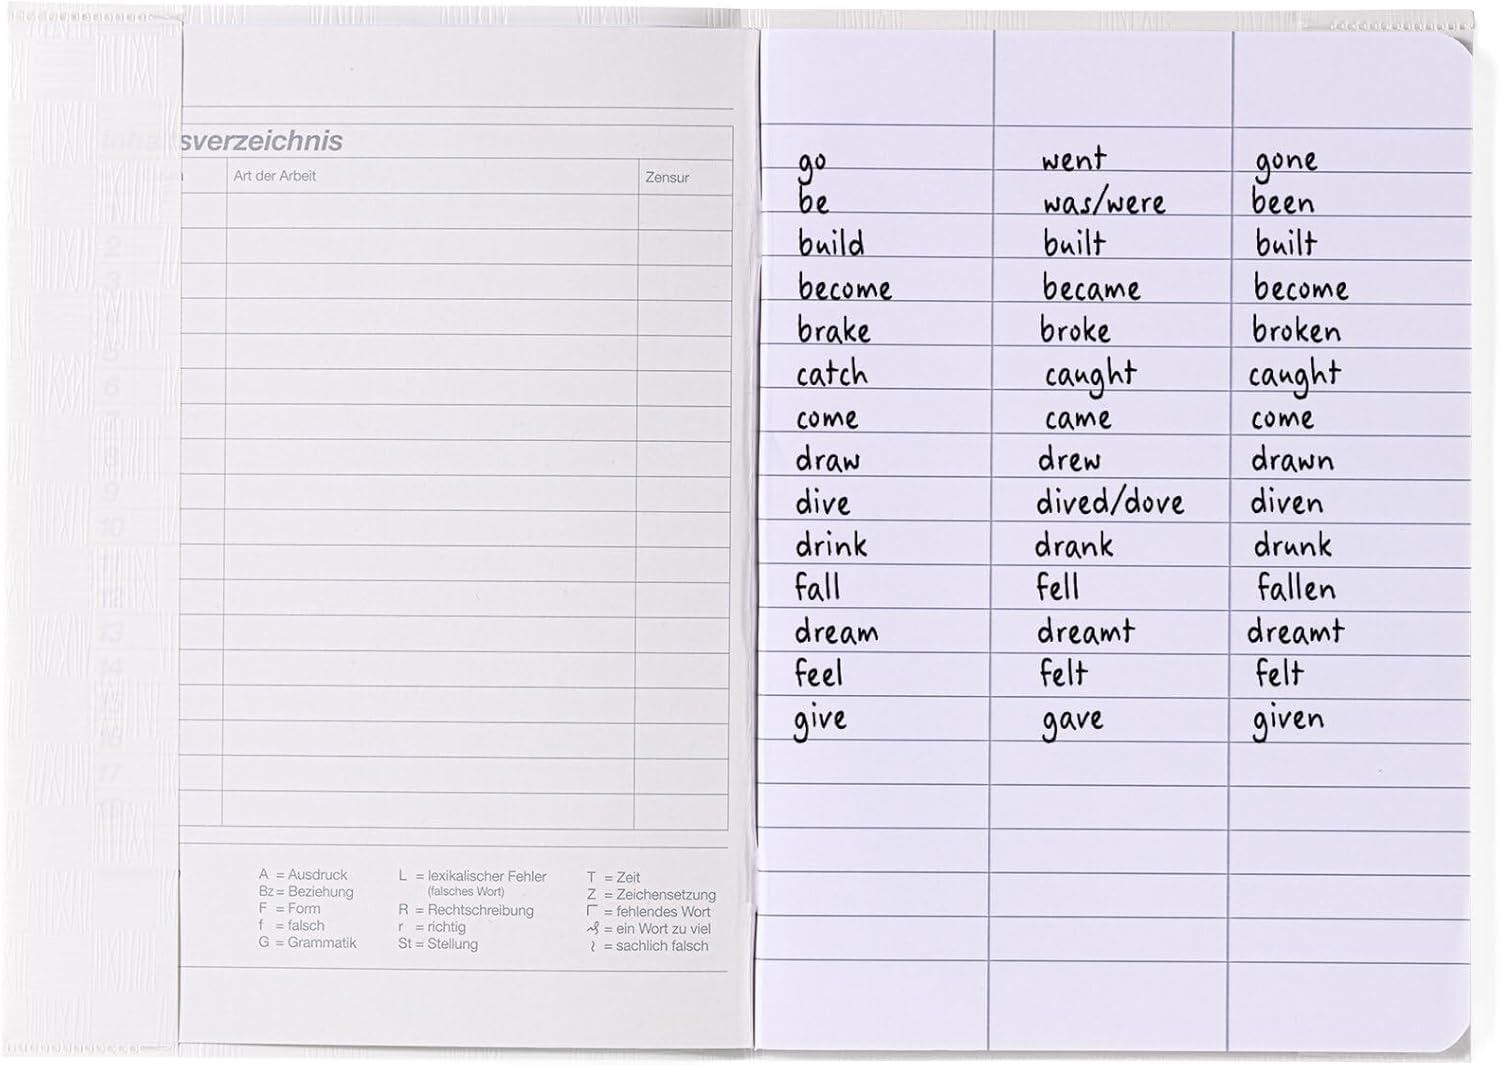 Inhaltsverzeichnis
Art der Arbeit Zensur
2
3
5
6
9
10
12
13
14
15
16
17
18
A = Ausdruck
Bz = Beziehung
F = Form
f = falsch
G = Grammatik
L = lexikalischer Fehler
(falsches Wort)
R = Rechtschreibung
r = richtig
St = Stellung
T = Zeit
Z = Zeichensetzung
Γ = fehlendes Wort
= ein Wort zu viel
≀ = sachlich falsch
go went gone
be was/were been
build built built
become became become
brake broke broken
catch caught caught
come came come
draw drew drawn
dive dived/dove diven
drink drank drunk
fall fell fallen
dream dreamt dreamt
feel felt felt
give gave given